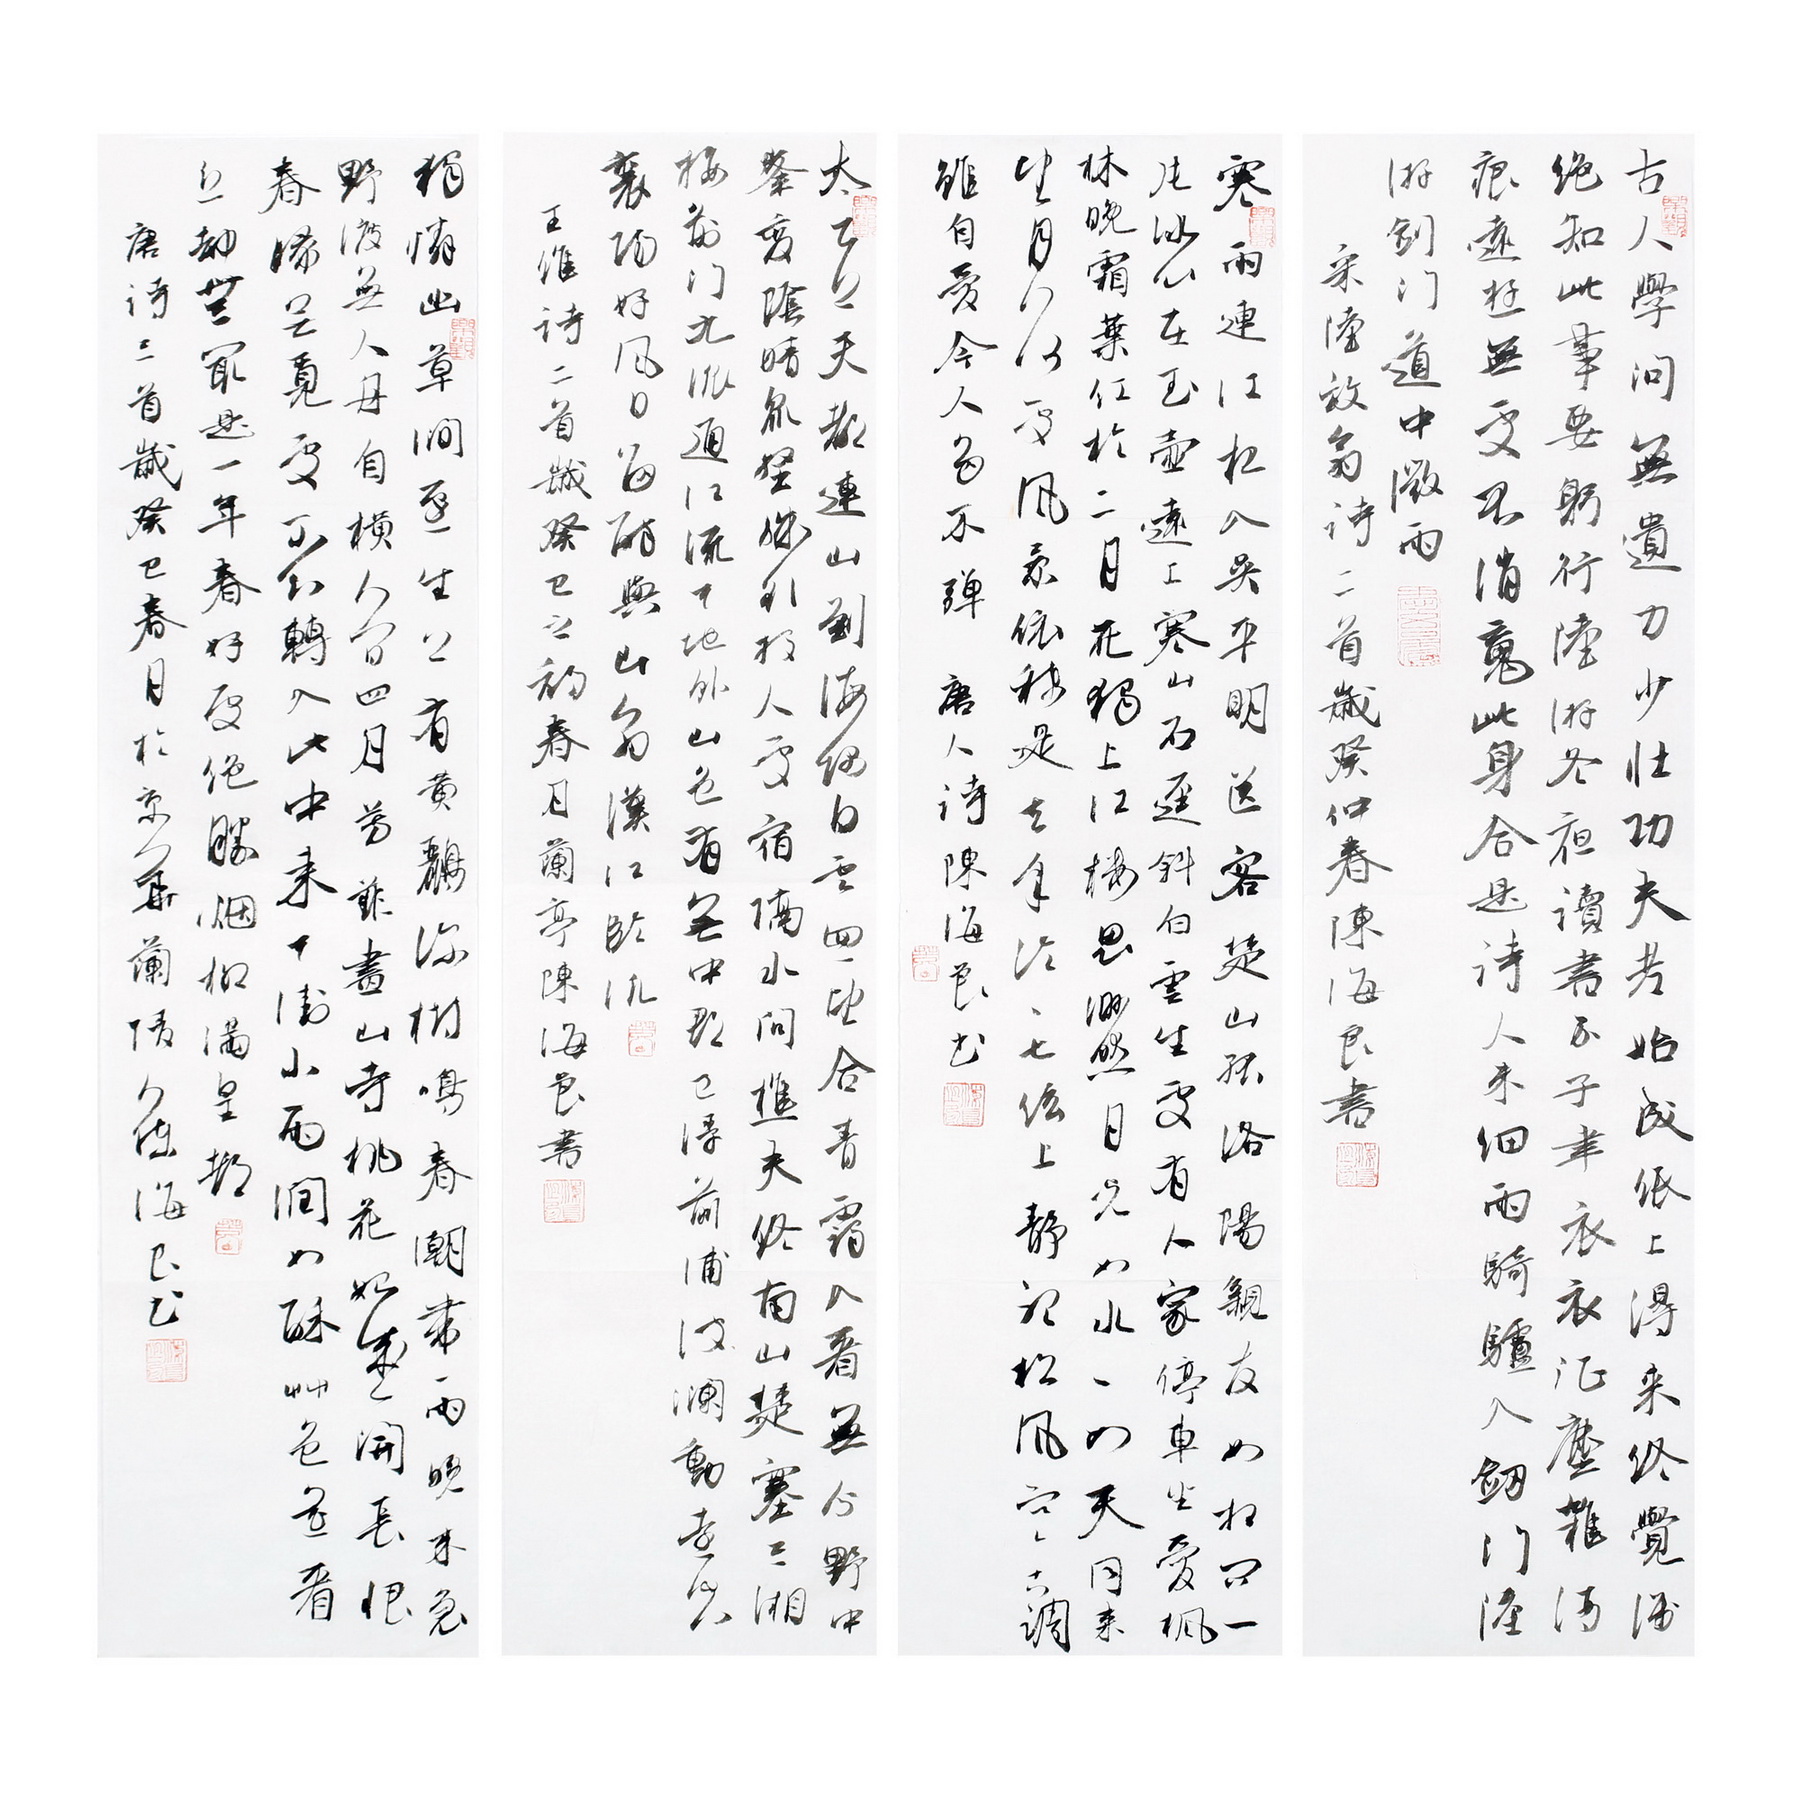 古人學问無遺力少壮功夫老始成纸上得来终覺浅
绝知此事要躬行陸游冬夜讀書示子聿衣衣征塵雜酒
痕遠遊無處不消魂此身合是诗人未细雨騎驢入劔门陸
游剑门道中微雨
宋陸放翁诗二首歲癸仲春陳海良書
寒雨連江夜入吴平明送客楚山孤洛陽親友如相问一
片冰心在玉壶遠上寒山石逕斜白雲生處有人家停車坐愛枫
林晚霜葉红於二月花獨上江楼思渺然月光如水水如天同来
望月人何處风景依稀是去年泠泠七弦上静听松风寒古调
雖自愛今人多不弹 唐人诗陳海良书
太乙近天都連山到海隅白雲四望合青靄入看無分野中
峯變陰晴眾壑殊欲投人處宿隔水问樵夫终南山楚塞三湘
接荊门九派通江流天地外山色有無中郡邑浮前浦波澜動遠空
襄陽好风日留醉與山翁漢江臨汎
王维诗二首歲癸巳之初春月蘭亭陳海良書
獨憐幽草澗邊生上有黄鸝深樹鳴春潮带雨晚来急
野渡無人舟自横人间四月芳菲盡山寺桃花始盛開長恨
春歸無覓處不知轉入此中来天街小雨润如酥艸色遥看
近却無最是一年春好處绝勝烟柳满皇都
唐诗三首歲癸巳春月於京華蘭陵人陳海良书